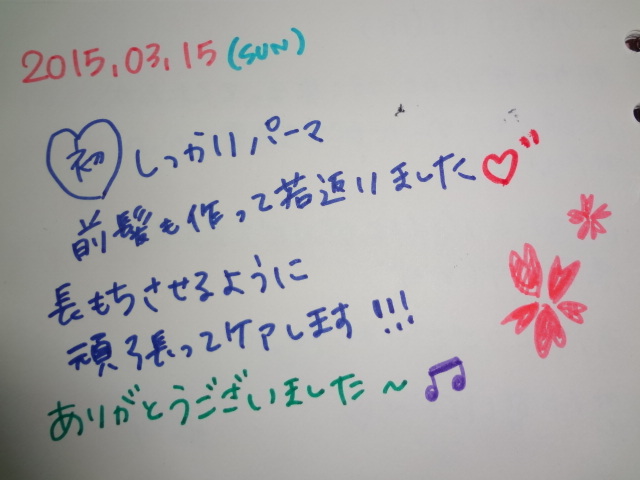 2015.03.15 (SUN)
初 しっかりパーマ
前髪も作って若返りました♡"
長もちさせるように
頑張ってケアします!!!
ありがとうございました〜♫